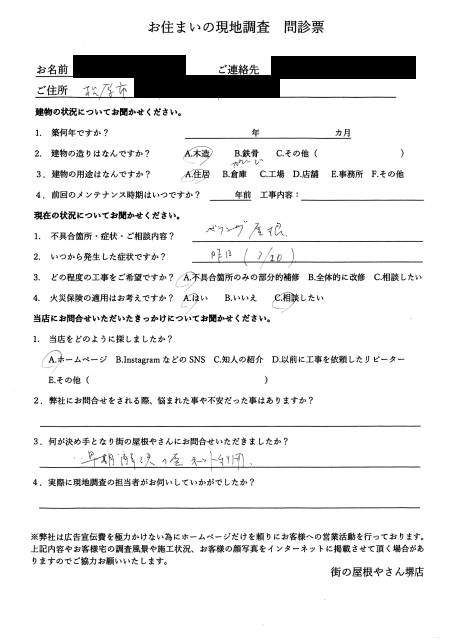 お住まいの現地調査 問診票
お名前 ご連絡先
ご住所 松原市
建物の状況についてお聞かせください。
1. 築何年ですか? 年 カ月
2. 建物の造りはなんですか? A.木造 B.鉄骨 C.その他( )
3. 建物の用途はなんですか? A.住居 B.倉庫 C.工場 D.店舗 E.事務所 F.その他
4. 前回のメンテナンス時期はいつですか? 年前 工事内容:
現在の状況についてお聞かせください。
1. 不具合箇所・症状・ご相談内容? ベランダ屋根
2. いつから発生した症状ですか? 昨日(3/20)
3. どの程度の工事をご希望ですか? A.不具合箇所のみの部分的補修 B.全体的に改修 C.相談したい
4. 火災保険の適用はお考えですか? A.はい B.いいえ C.相談したい
当店にお問合せいただいたきっかけについてお聞かせください。
1. 当店をどのように探しましたか?
A.ホームページ B.InstagramなどのSNS C.知人の紹介 D.以前に工事を依頼したリピーター
E.その他( )
2. 弊社にお問合せをされる際、悩まれた事や不安だった事はありますか?
3. 何が決め手となり街の屋根やさんにお問合せいただきましたか?
早期解決の為ネット利用
4. 実際に現地調査の担当者がお伺いしていかがでしたか?
※弊社は広告宣伝費を極力かけない為にホームページだけを頼りにお客様への営業活動を行っております。
上記内容やお客様宅の調査風景や施工状況、お客様の顔写真をインターネットに掲載させて頂く場合があ
りますのでご協力お願いいたします。
街の屋根やさん堺店